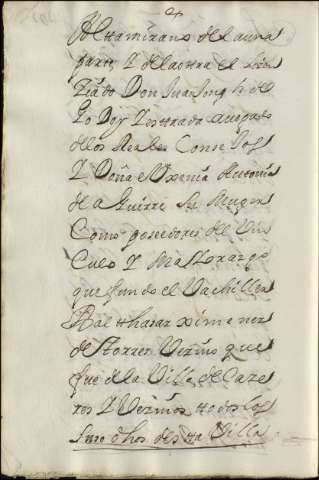 Altamirano de la una
parte, Y de la otra el licen
Ziado Don Juan Joseph de
Po Doy Y estrada auogado
de los Reales Conse Jos
Y Doña eVxenia Antonia
de aGuirre Su Muger
Como poseedores del Vin
Culo Y MaYorazgo
que fundo el Vachiller
Balthasar ximenez
de Storres Vezino que
fue de la Villa de Caze
res Y Vezinos todos los
Suso dhos desta Villa